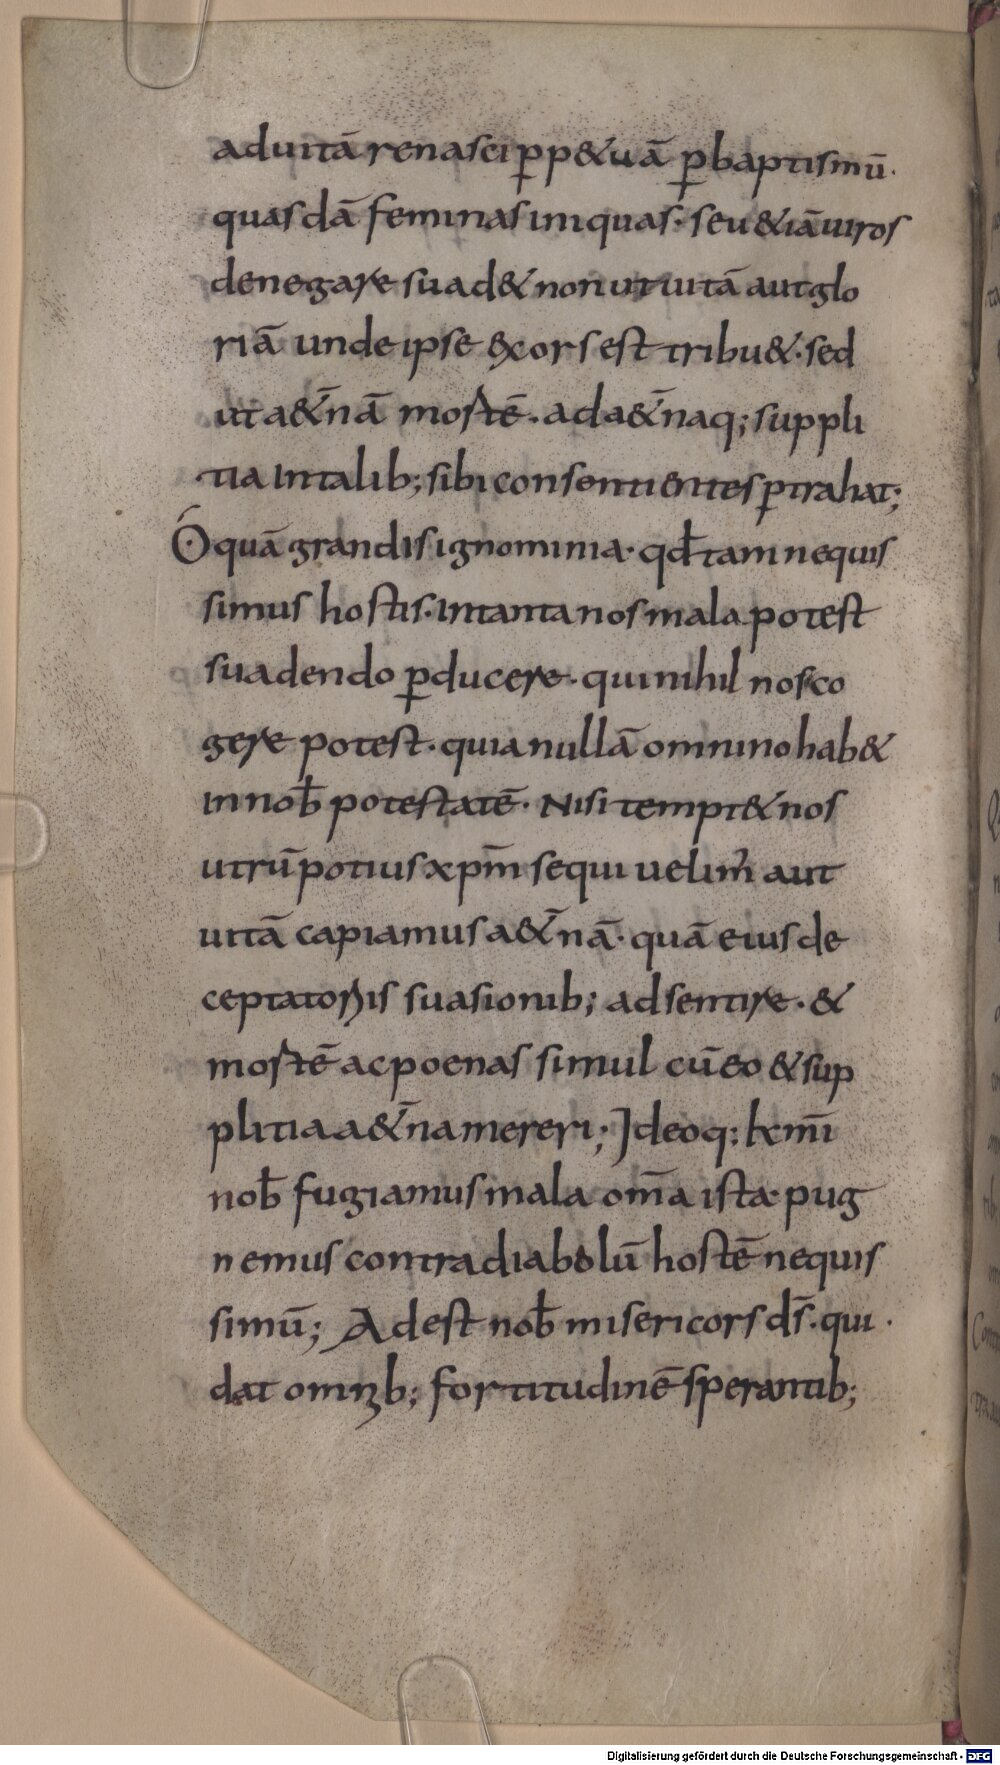 aduitā renasci ꝑp&uā ꝑbaptismū·
quasdā feminas iniquas· seu &iāuiros
denegare suad& non ut uitā aut glo
riā unde ipse excors est tribu&· sed
ut a&̄nā mortē· ad a&̄naq; suppli
tia intalib; sibi consentientes ꝑtrahat;
O quā grandis ignominia· qd̄ tam nequis
simus hostis· intanta nos mala potest
suadendo ꝑducere· qui nihil nos co
gere potest· quia nullā omnino hab&
in nob̄ potestatē· Nisi tempt& nos
utrū potius xpm̄ sequi uelim̄ aut
uitā capiamus a&̄nā· quā eius de
ceptatoris suasionib; adsentire· &
mortē ac poenas simul cū eo & sup
plitia a&̄na mereri; Ideoq; kxmi̅
nob̄ fugiamus mala om̄a ista pug
nemus contra diabolū hostē nequis
simū; Adest nob̄ misericors ds̄· qui·
dat omnib; fortitudinē sperantib;
Digitalisierung gefördert durch die Deutsche Forschungsgemeinschaft - DFG